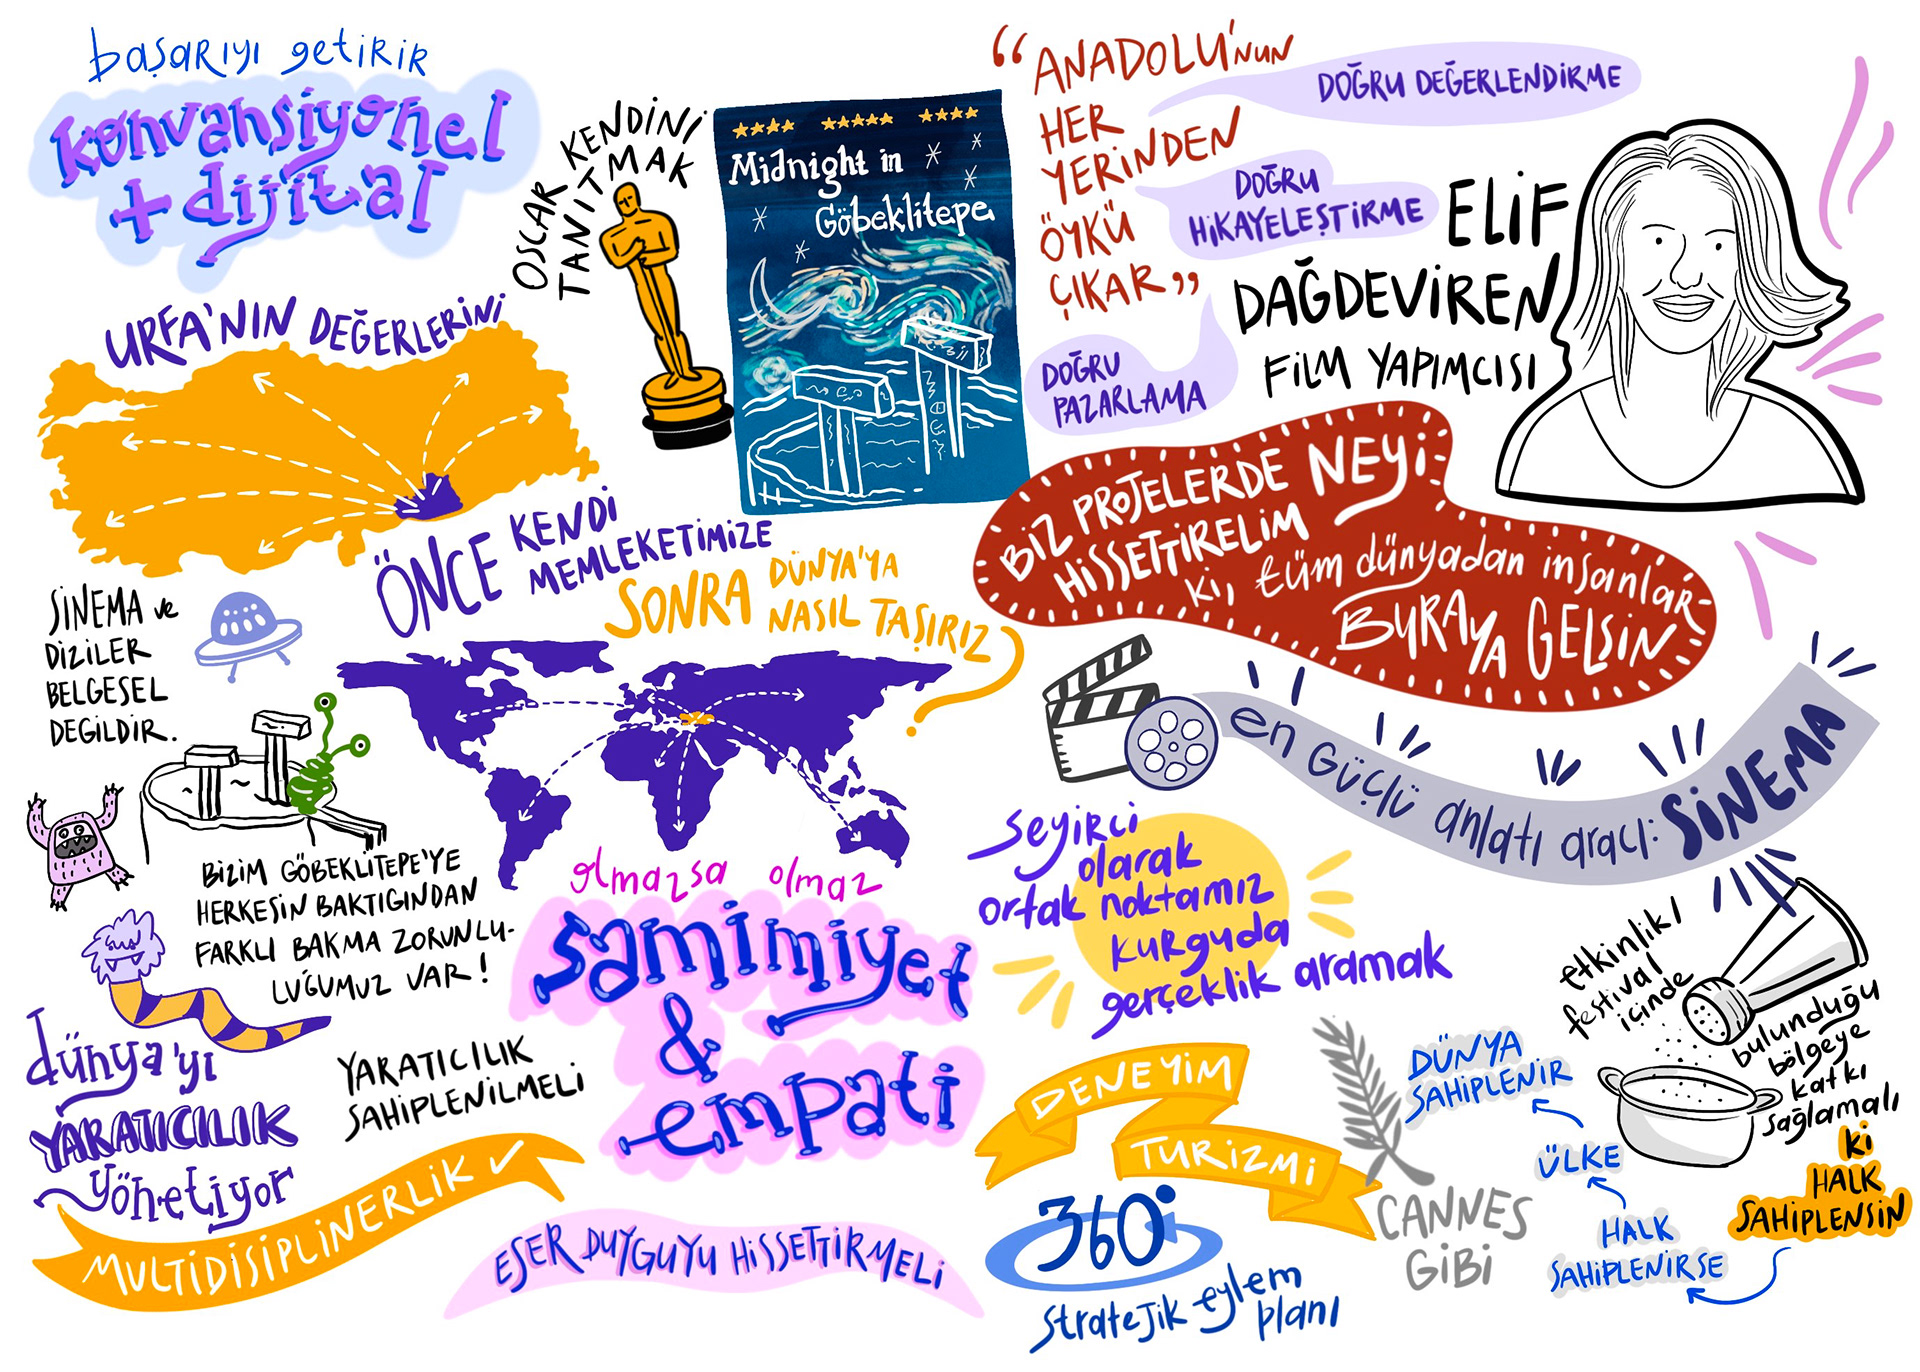 başarıyı getirir
konvansiyonel
+ dijital
OSCAR KENDİNİ
TANITMAK
Midnight in
Göbeklitepe
“ANADOLU'nun
HER
YERİNDEN
ÖYKÜ
ÇIKAR”
DOĞRU DEĞERLENDİRME
DOĞRU
HİKAYELEŞTİRME
DOĞRU
PAZARLAMA
ELİF
DAĞDEVİREN
FİLM YAPIMCISI
URFA'NIN DEĞERLERİNİ
ÖNCE KENDİ
MEMLEKETİMİZE
SONRA DÜNYA'YA
NASIL TAŞIRIZ
?
BİZ PROJELERDE NEYİ
HİSSETTİRELİM
ki, tüm dünyadan insanlar
BURAYA GELSİN
SİNEMA ve
DİZİLER
BELGESEL
DEGİLDİR.
en güçlü anlatı aracı: SİNEMA
BİZİM GÖBEKLİTEPE'YE
HERKESİN BAKTIGINDAN
FARKLI BAKMA ZORUNLU-
LUĞUMUZ VAR!
olmazsa olmaz
samimiyet
&
empati
seyirci
olarak
ortak noktamız
kurguda
gerçeklik aramak
etkinlik/
festival
içinde
bulunduğu
bölgeye
katkı
sağlamalı
ki
HALK
SAHİPLENSİN
HALK
SAHİPLENİRSE
ÜLKE
DÜNYA
SAHİPLENİR
dünya'yı
YARATICILIK
yönetiyor
YARATICILIK
SAHİPLENİLMELİ
MULTİDİSİPLİNERLİK ✓
ESER DUYGUYU HİSSETTİRMELİ
DENEYİM
TURİZMİ
CANNES
GİBİ
360°
stratejik eylem
planı